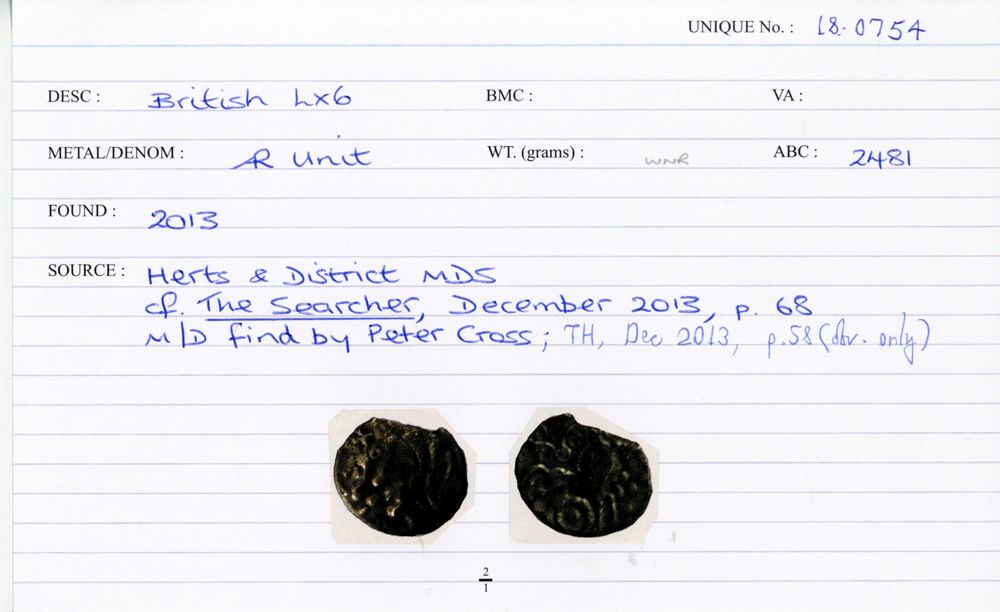 UNIQUE No. : 18-0754
DESC : British LX6 BMC : VA :
METAL/DENOM : AR Unit WT. (grams) : WNR ABC : 2481
FOUND : 2013
SOURCE : Herts & District MDS
cf. The Searcher, December 2013, p. 68
M/D find by Peter Cross; TH, Dec 2013, p.58 (obv. only)
2
1